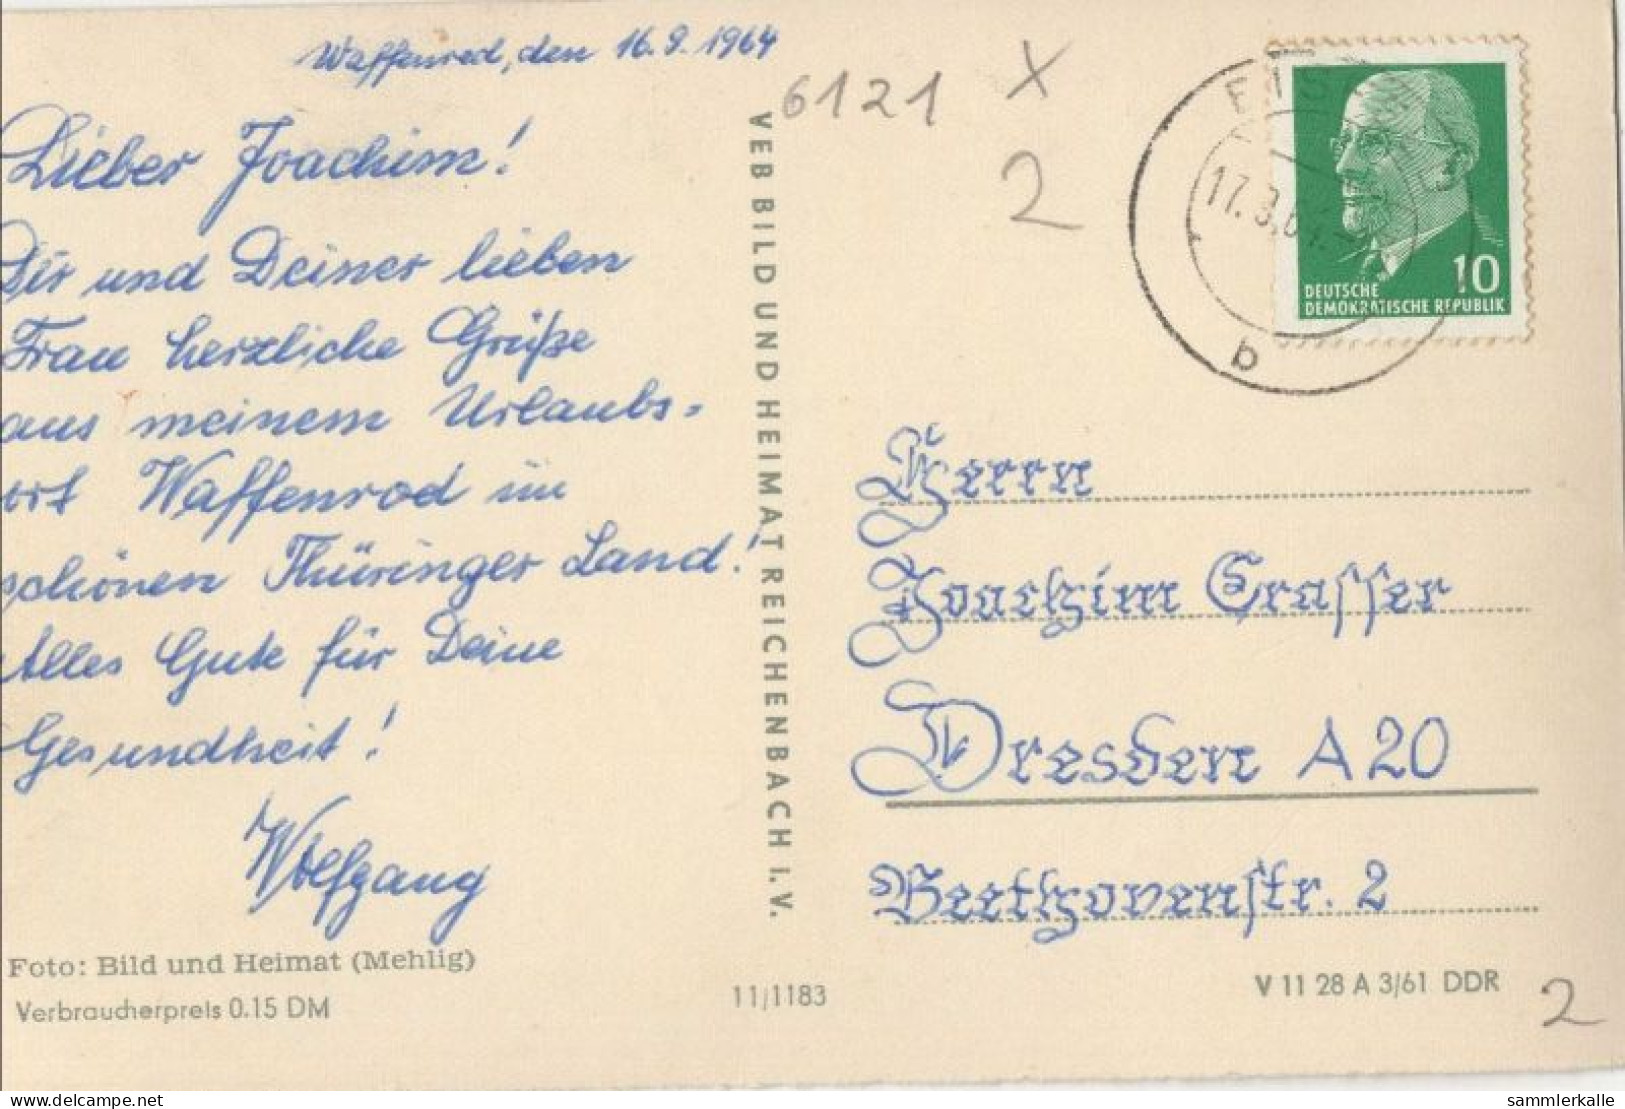 Waffenrod, den 16.9.1964
Lieber Joachim!
Dir und Deiner lieben
Frau herzliche Grüße
aus meinem Urlaubs-
ort Waffenrod im
schönen Thüringer Land!
Alles Gute für Deine
Gesundheit!
Wolfgang
Foto: Bild und Heimat (Mehlig)
Verbraucherpreis 0.15 DM
11/1183
VEB BILD UND HEIMAT REICHENBACH I. V.
6121 X
2
17.9.64
b
10
DEUTSCHE
DEMOKRATISCHE REPUBLIK
Herrn
Joachim Crasser
Dresden A 20
Beethovenstr. 2
V 11 28 A 3/61 DDR
2
sammlerkalle